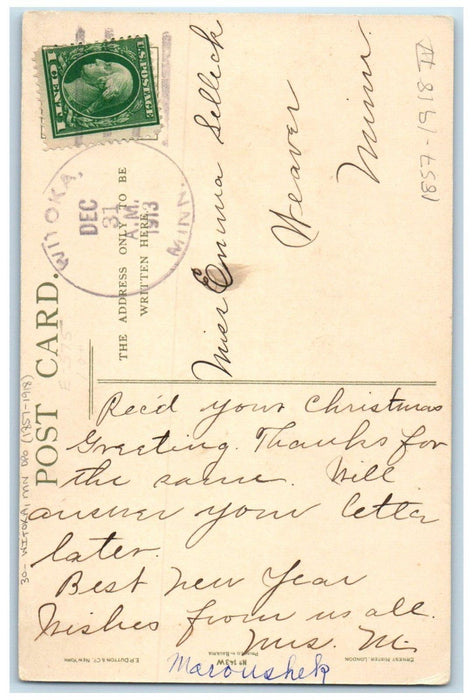 U.S. POSTAGE
1 CENT 1
WITOKA,
MINN.
DEC
31
A.M.
1913
THE ADDRESS ONLY TO BE
WRITTEN HERE.
POST CARD.
Miss Emma Selleck
Weaver
Minn.
1857-1918 IV
30- WITOKA, MN DPO (1857-1918)
Rec'd your Christmas
Greeting. Thanks for
the same. Will
answer your letter
later.
Best New Year
Wishes from us all.
Mrs. M.
Maroushek
E.P. DUTTON & CO. NEW YORK
No 143W
PRINTED IN BAVARIA
ERNEST NISTER, LONDON